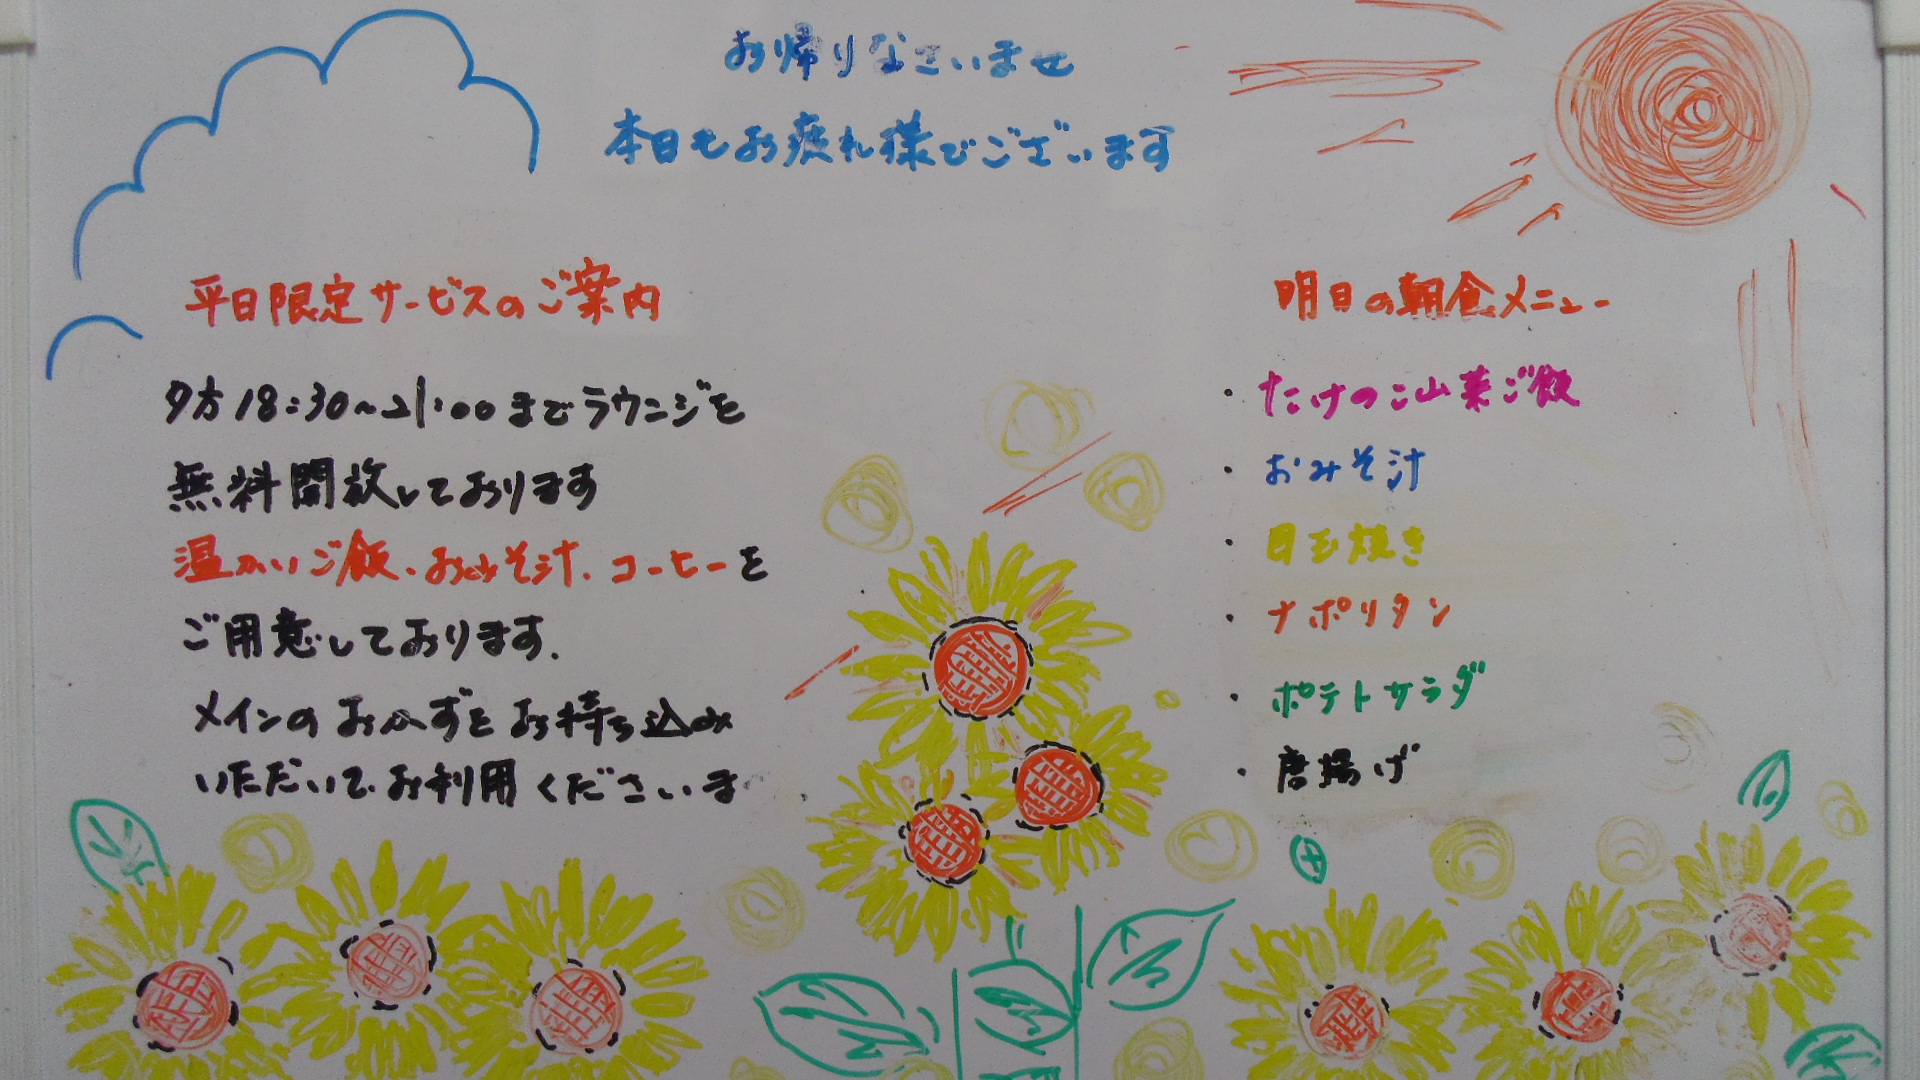 お帰りなさいませ
本日もお疲れ様でございます
平日限定サービスのご案内
夕方18:30～21:00までラウンジを
無料開放しております
温かいご飯、おみそ汁、コーヒーを
ご用意しております.
メインのおかずをお持ち込み
いただいて、お利用くださいま
明日の朝食メニュー
・たけのこ山菜ご飯
・おみそ汁
・目玉焼き
・ナポリタン
・ポテトサラダ
・唐揚げ